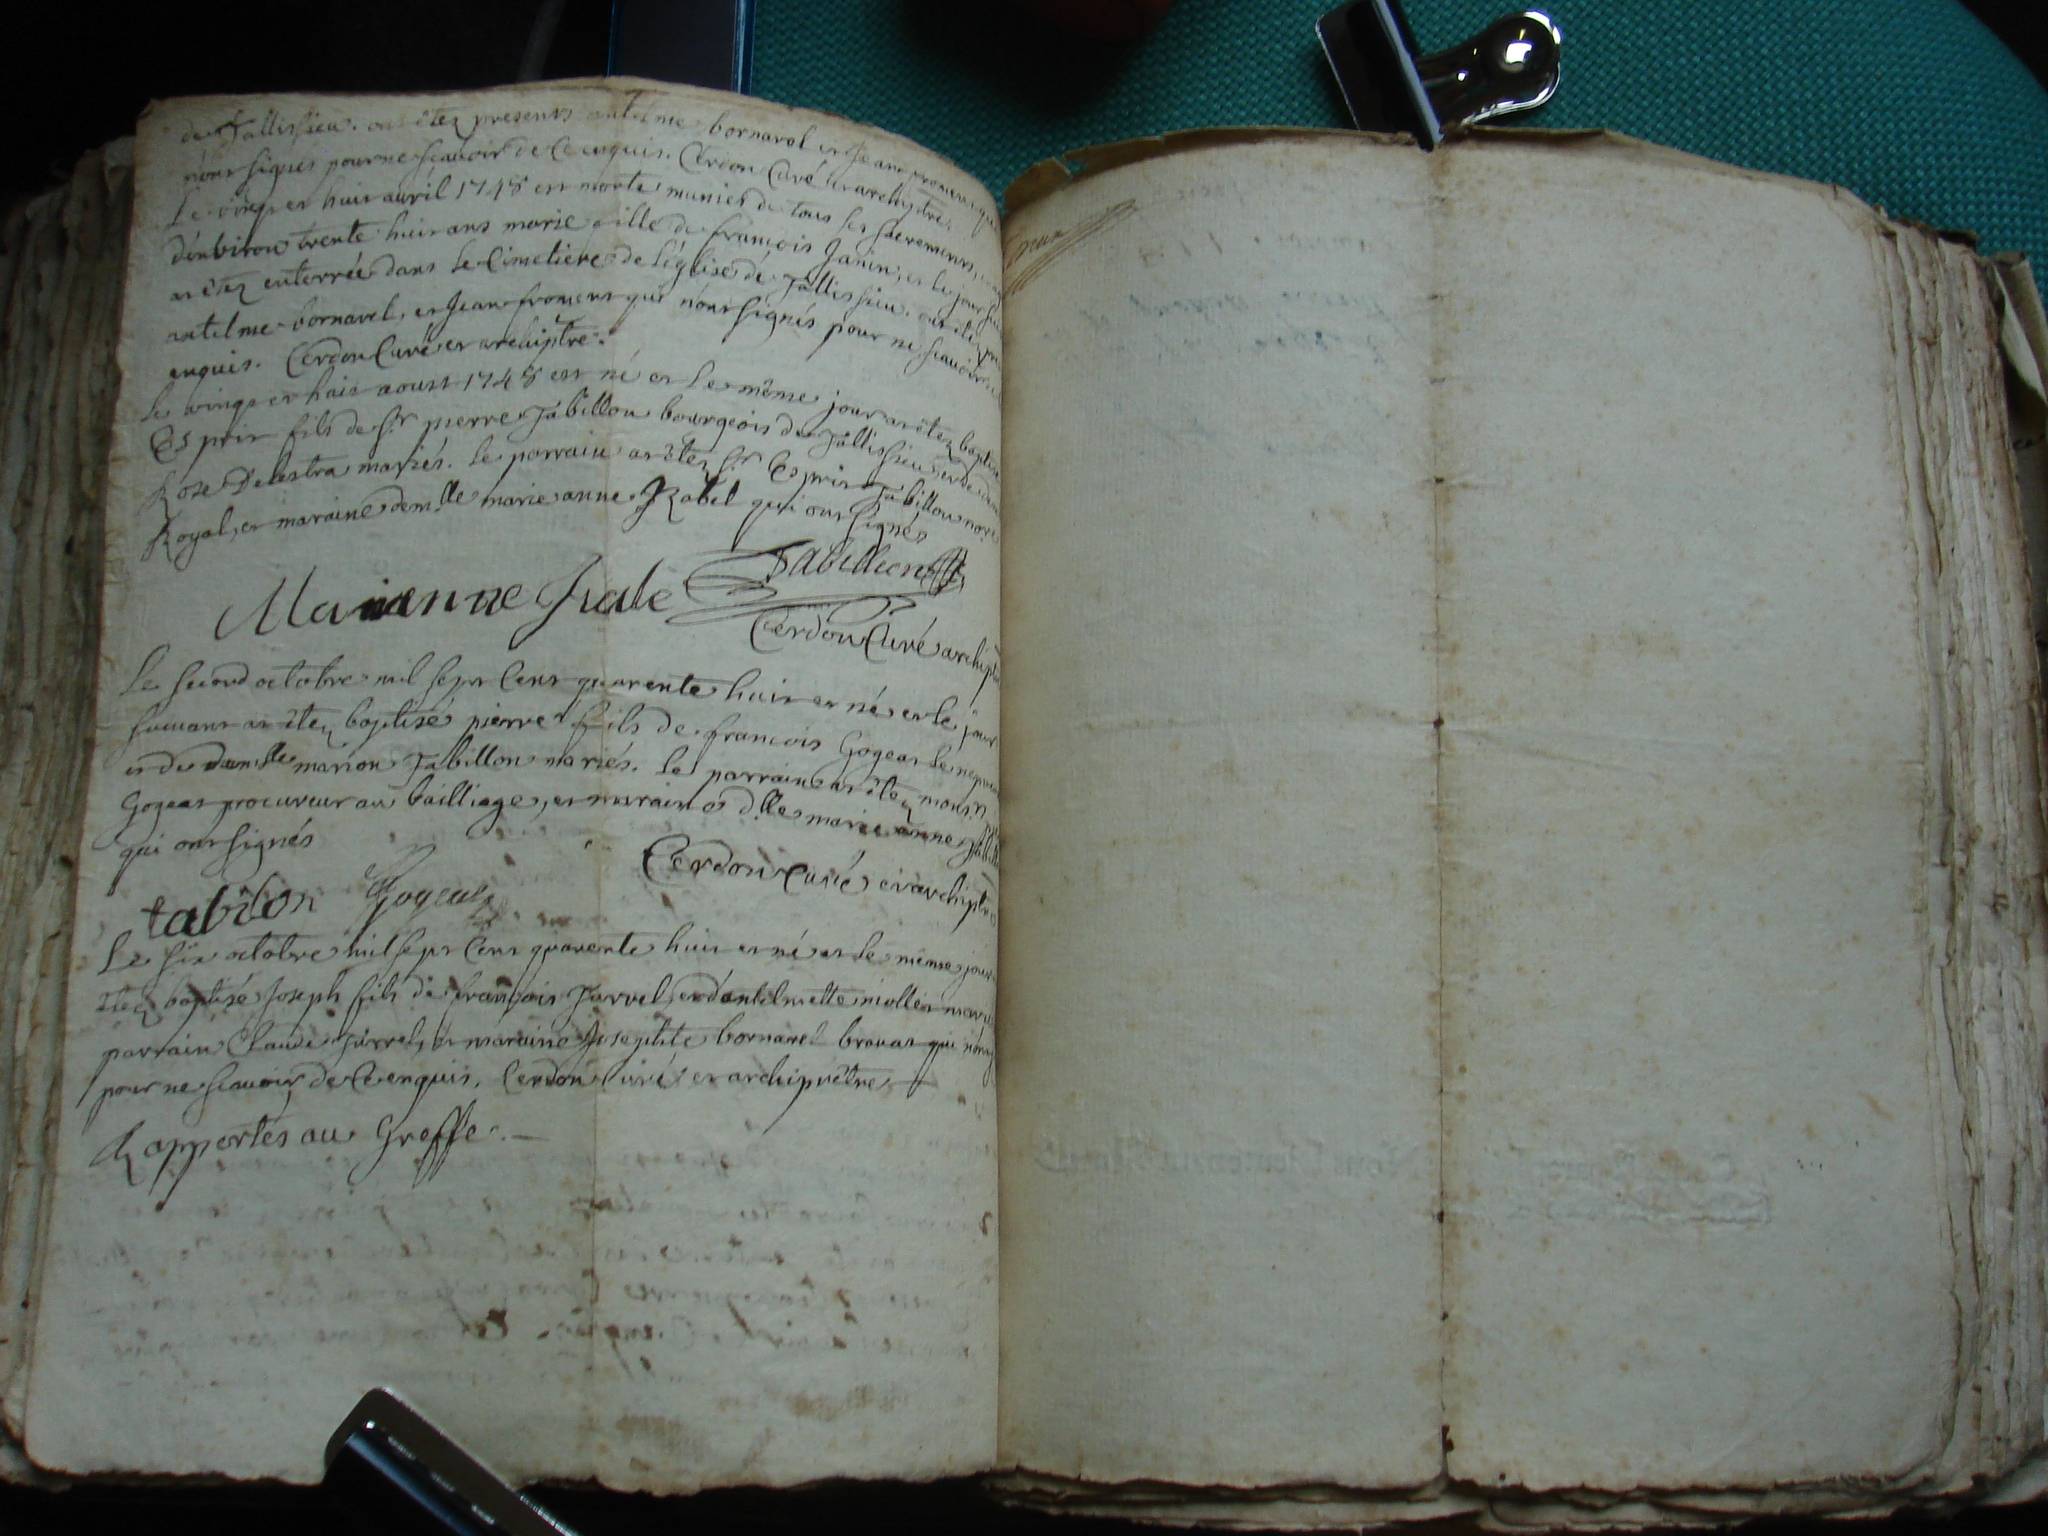 de Tallissieu. ont étez presents antelme bornavel et Jean froment qui
n'ont signés pour ne scauoir de ce enquis. Cerdon Curé et archiptre.
Le vingt et huit auril 1748 est morte munies de tous les sacrements,
d'enbiron trente huit ans marie fille de françois Janin, et le jour
at étez enterrée dans le Cimetiere de l'église de Tallissieu. ont étez
antelme bornavel, et Jean froment qui n'ont signés pour ne scauoir
enquis. Cerdon Curé et archiptre.
Le vingt et huit aoust 1748 est né et le même jour at étez baptisé
Esprit fils de sr. pierre Tabillon bourgeois de Tallissieu et de
Rose Delestra mariés. Le parrain at étez sr. Esprit Tabillon nore.
Royal, et maraine demlle marie anne Izabel qui ont signés
Marienne Isale Tabillion
Cerdon Curé archiptre
Le second octobre mil sept Cent quarente huit et né et le jour
suiuant at étez baptisé pierre fils de françois Gogeat
et de damlle marion Tabillon mariés. Le parrain at étez monsr.
Gogeat procureur au bailliage, et maraine dlle marie anne
qui ont signés
tabilon Gogeat Cerdon Curé et archiptre
Le six octobre mil sept Cent quarente huit et né et le même jour
étez baptisé Joseph fils de françois Jurrel, et d'antelmette
parrain Claude Jurrel, et maraine Josephte bornavel qui n'ont
pour ne scauoir de Ce enquis. Cerdon Curé et archiprêtre
Rapportés au Greffe.